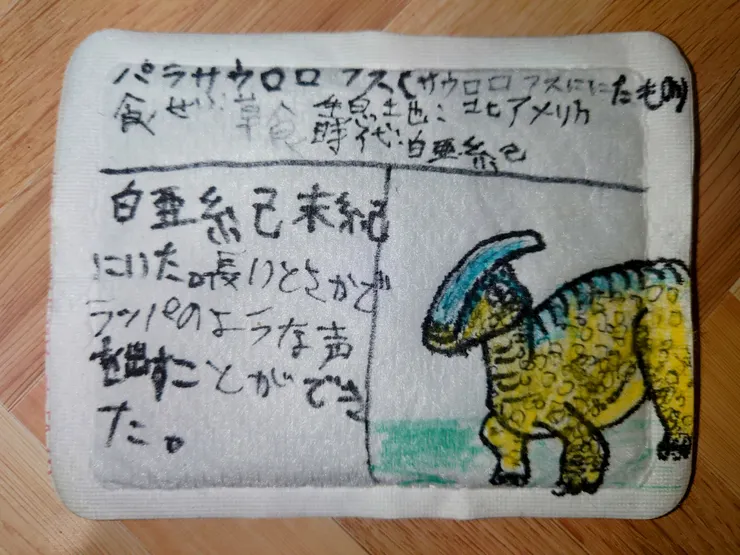 パラサウロロフス(サウロロフスににたもの)
食せい:草食 生息地:北アメリカ
時代:白亜紀
白亜紀末紀
にいた。長いとさかで
ラッパのような声
を出すことができ
た。